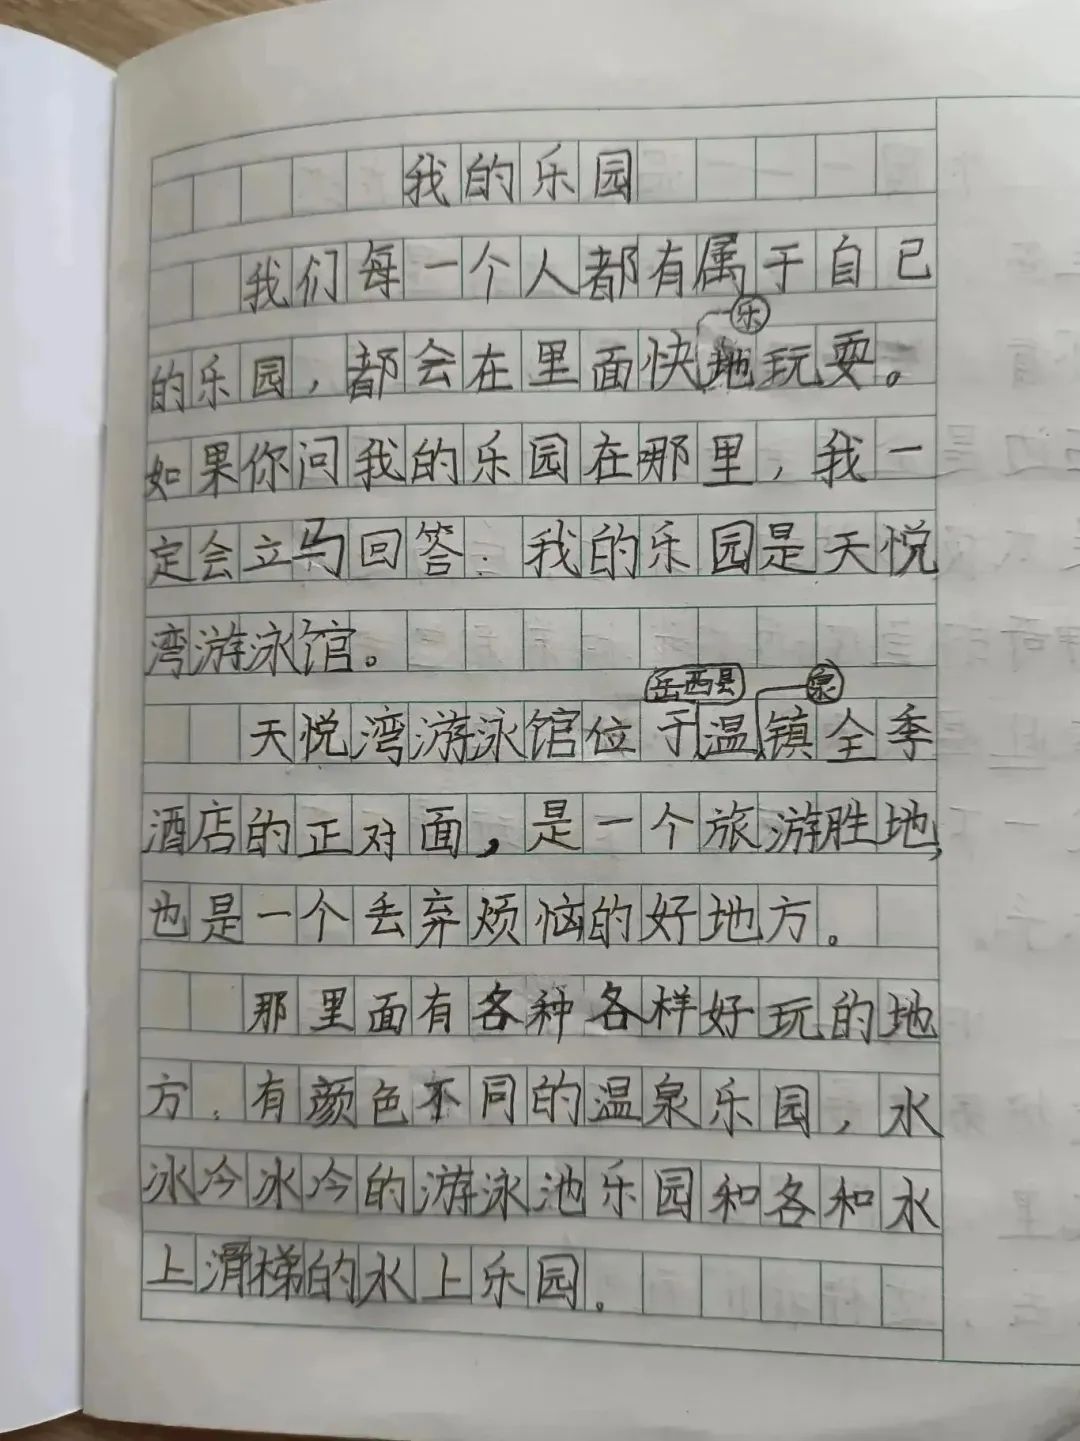 我的乐园
我们每一个人都有属于自己
的乐园，都会在里面快乐地玩耍。
如果你问我的乐园在哪里，我一
定会立马回答：我的乐园是天悦
湾游泳馆。
天悦湾游泳馆位于岳西县温泉镇全季
酒店的正对面，是一个旅游胜地，
也是一个丢弃烦恼的好地方。
那里面有各种各样好玩的地
方，有颜色不同的温泉乐园，水
冰冷冰冷的游泳池乐园和各和水
上滑梯的水上乐园。